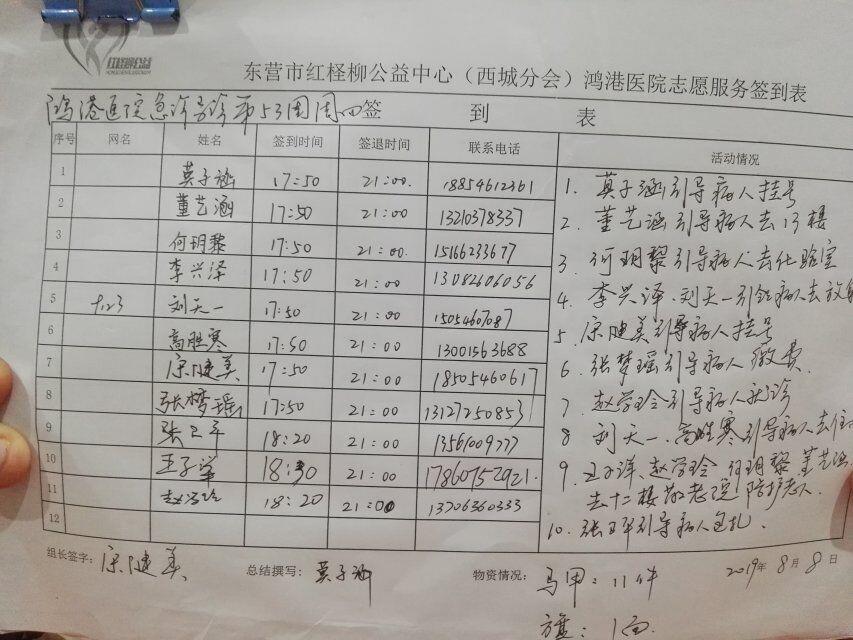 红柽柳公益
东营市红柽柳公益中心（西城分会）鸿港医院志愿服务签到表
鸿港医院急诊导诊第53周周四签 到 表
序号 网名 姓名 签到时间 签退时间 联系电话 活动情况
1 莫子涵 17:50 21:00. 18854612361
2 董艺涵 17:50 21:00 13210378337
3 何玥黎 17:50 21:00. 15166233677
4 李兴泽 17:50 21:00 13082606056
5 9.23 刘天一 17:50 21:00 15054607087
6 高胜寒 17:50 21:00 13001563688
7 宗健美 17:50 21:00 18505460617
8 张梦瑶 17:50 21:00 13127250853
9 张卫平 18:20 21:00 13561009777
10 18:30 21:00 17860752921.
11 18:20 21:00 13706360333
12
1. 莫子涵引导病人挂号
2. 董艺涵引导病人去13楼
3. 何玥黎引导病人去化验室
4. 李兴泽、刘天一引领病人去放
5. 宗健美引导病人挂号
6. 张梦瑶引导病人缴费.
7. 引导病人就诊
8 刘天一、高胜寒引导病人去住
9. 何玥黎 董艺涵
去十二楼敬老院陪护老人.
10. 引导病人包扎.
组长签字： 宗健美 总结撰写： 莫子涵 物资情况： 马甲：11件 2019年8月8日
方巾： 1面.